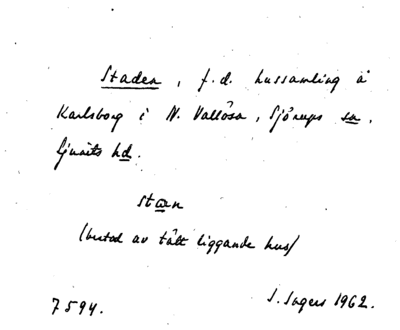 Staden, f.d. hussamling å
Karlsborg i N. Vallösa, Sjörups sn.
Ljunits hd.
staan
(bestod av tätt liggande hus)
7594.
S. Ingers 1962.